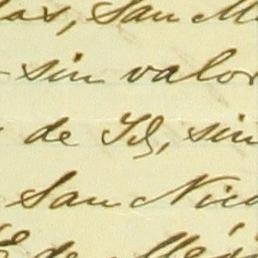 las, San M
sin valor
de Id, sin
San Nico
de Mé